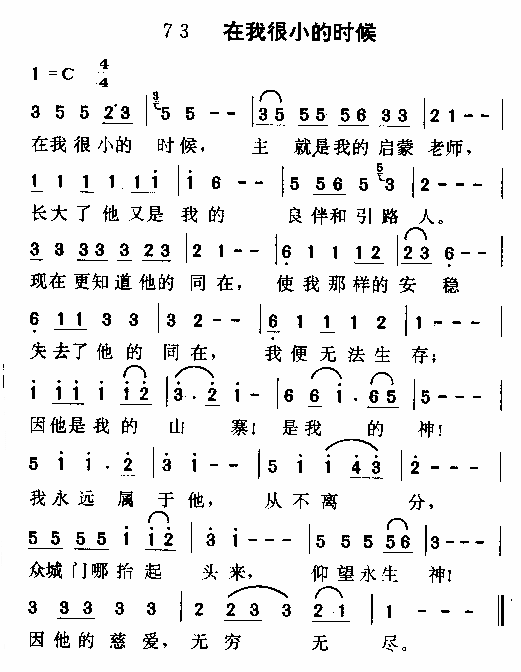 73 在我很小的时候
1=C 4/4
3 5 5 23 | 5 5 - - | 35 55 56 33 | 21 - -
在我很小的 时候， 主 就是我的启蒙 老师，
1 1 1 1.1i | i 6 - - | 5 56 5 3 | 2 - - -
长大了他又是 我的 良伴和引路 人。
3 3 33 3 23 | 21 - - | 6 1 1 12 | 23 6 - -
现在更知道他的 同在， 使我那样的安 稳
6 11 3 3 | 32 - - | 6 1 1 1 2 | 1 - - -
失去了他的 同在， 我便无法生 存；
i ii i i2 | 3.2i - | 6 6 i. 65 | 5 - - -
因他是我的 山 寨！ 是我 的 神！
5 i i. 2 | 3 i - - | 5 i i 43 | 2 - - -
我永远 属 于他， 从不离 分，
55 55 5 i i2 | 3 i - - | 5 5 5 56 | 3 - - -
众城门哪抬起 头来， 仰望永生 神！
3 33 3 3 | 2 23 3 - | 3 3 2 1 | 1 - - -
因他的慈 爱，无穷 无 尽。